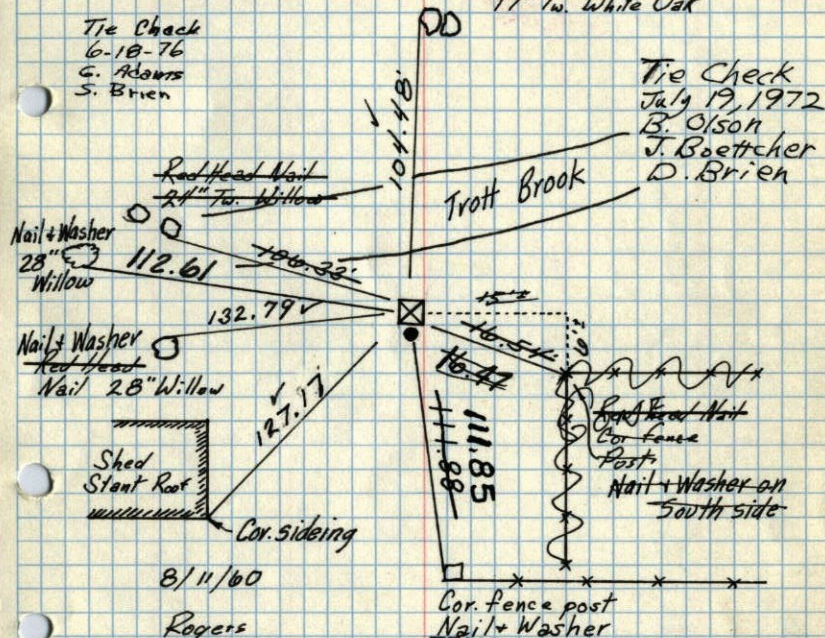 Tw. White Oak
Tie Check
6-18-76
G. Adams
S. Brien
Tie Check
July 19, 1972
B. Olson
J. Boettcher
D. Brien
104.48'
Trott Brook
Red Head Nail
24" Tw. Willow
Nail & Washer
28"
Willow
112.61
106.33'
132.79
Nail & Washer
Red Head
Nail 28" Willow
15'±
16.54'
16.47
127.17
111.85
111.88
Red Head Nail
Cor fence
Post
Nail & Washer on
South side
Shed
Slant Roof
Cor. sideing
8/11/60
Rogers
Cor. fence post
Nail & Washer